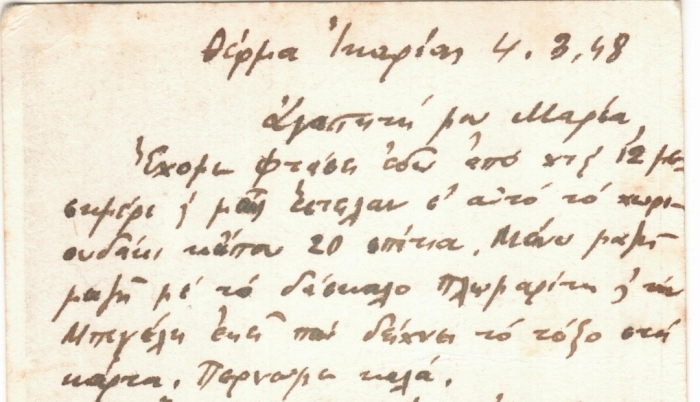 Θέρμα Ἰκαρίας 4.3.48
Ἀγαπητή μου Μαρία
Ἔχομε φτάσει ἐδῶ ἀπό χτές 12 με-
σημέρι ϗ μᾶς ἔστειλαν σ' αὐτό τό χωρι-
ουδάκι κάπου 20 σπίτια. Μένω μαζῆ
μαζῆ μέ τό δάσκαλο Πλωμαρίτη ϗ τόν
Μπεγέλη ἐκεῖ πού δείχνει τό τόξο στή
κάρτα. Περνοῦμε καλά.